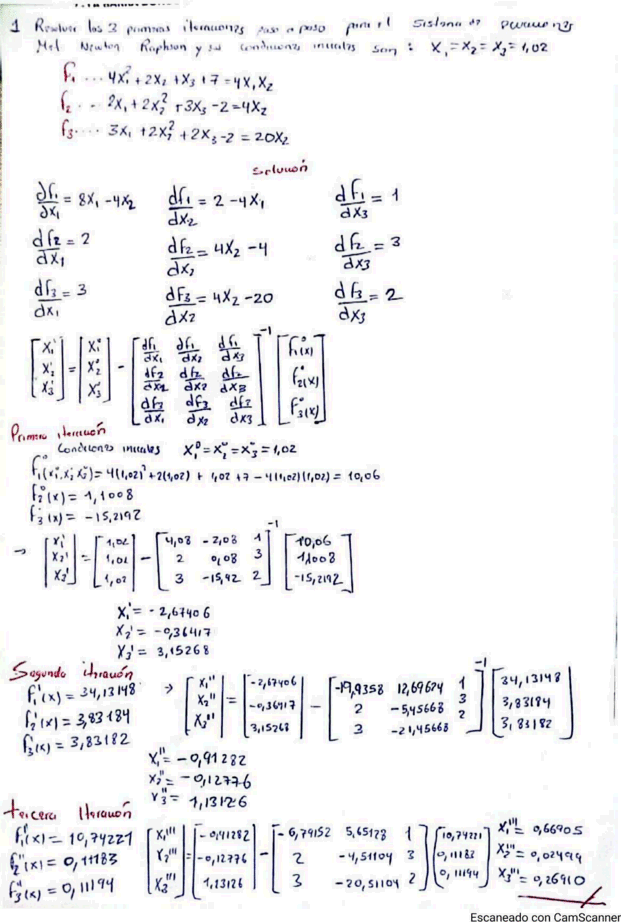 1 Resolver las 3 primeras iteraciones paso a paso para el Sistema de ecuaciones
Met Newton Raphson y sus condiciones iniciales son: X₁=X₂=X₃=1,02
f₁ ... 4X₁²+2X₂+X₃+7=4X₁X₂
f₂ ... 2X₁+2X₂²+3X₃-2=4X₂
f₃.... 3X₁+2X₂²+2X₃-2=20X₂
Solución
df₁/dx₁ = 8X₁-4X₂ df₁/dx₂ = 2-4X₁ df₁/dx₃ = 1
df₂/dx₁ = 2 df₂/dx₂ = 4X₂-4 df₂/dx₃ = 3
df₃/dx₁ = 3 df₃/dx₂ = 4X₂-20 df₃/dx₃ = 2
[X₁' X₂' X₃'] = [X₁° X₂° X₃°] - [df₁/dx₁ df₁/dx₂ df₁/dx₃ df₂/dx₂ df₂/dx₂ df₂/dx₃ df₃/dx₁ df₃/dx₂ df₃/dx₃]⁻¹ [f₁°(x) f₂°(x) f₃°(x)]
Primera iteración
Condiciones iniciales X₁°=X₂°=X₃°=1,02
f₁°(x₁°,x₂°,x₃°)=4(1,02)²+2(1,02)+1,02+7-4(1,02)(1,02)=10,06
f₂°(x) = 1,1008
f₃°(x) = -15,2192
→ [X₁' X₂' X₃'] = [1,02 1,02 1,02] - [4,08 -2,08 1 2 0,08 3 3 -15,92 2]⁻¹ [10,06 1,1008 -15,2192]
X₁' = -2,67406
X₂' = -0,36417
X₃' = 3,15268
Segunda iteración
f₁'(x) = 34,13148 → [X₁'' X₂'' X₃''] = [-2,67406 -0,36417 3,15268] - [-19,9358 12,69624 1 2 -5,45668 3 3 -21,45668 2]⁻¹ [34,13148 3,83184 3,83182]
f₂'(x) = 3,83184
f₃'(x) = 3,83182
X₁'' = -0,91282
X₂'' = -0,12776
X₃'' = 1,13126
tercera Iteración
f₁''(x) = 10,74221 [X₁''' X₂''' X₃'''] = [-0,91282 -0,12776 1,13126] - [-6,79152 5,65128 1 2 -4,51104 3 3 -20,51104 2] [10,74221 0,11183 0,11194] X₁''' = 0,66905
f₂''(x) = 0,11183 X₂''' = 0,02499
f₃''(x) = 0,11194 X₃''' = 0,26910
Escaneado con CamScanner